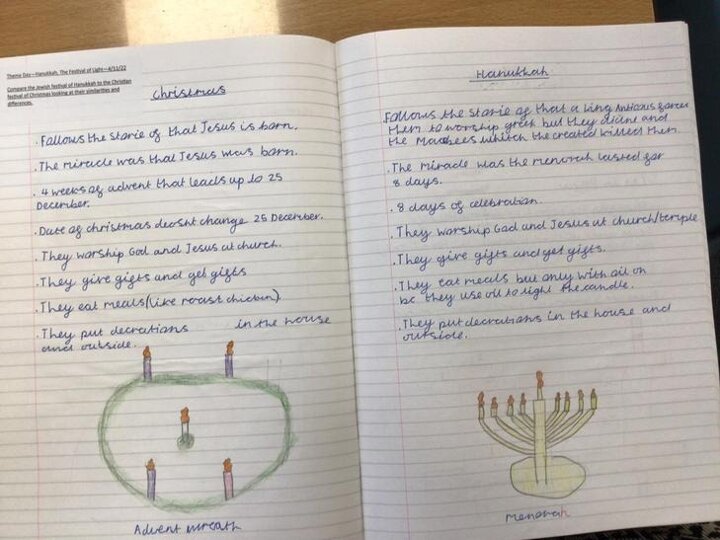 Theme Day—Hanukkah, The Festival of Light—4/11/22
Compare the Jewish festival of Hanukkah to the Christian
festival of Christmas looking at their similarities and
differences.
Christmas
. Follows the storie of that Jesus is born.
. The miracle was that Jesus was born.
. 4 weeks of advent that leads up to 25
December.
. Date of christmas deosnt change 25 December.
. They worship God and Jesus at church.
. They give gifts and get gifts
. They eat meals (like roast chicken)
. They put decrations in the house
and outside.
Advent wreath
Hanukkah
Follows the storie of that a king forces
them to worship greek but they and
the which the created killed them
. The miracle was the menorah lasted for
8 days.
. 8 days of celebration
. They worship God and Jesus at church/temple
. They give gifts and get gifts.
. They eat meals but only with oil on
bc they use oil to light the candle.
. They put decrations in the house and
outside.
Menorah